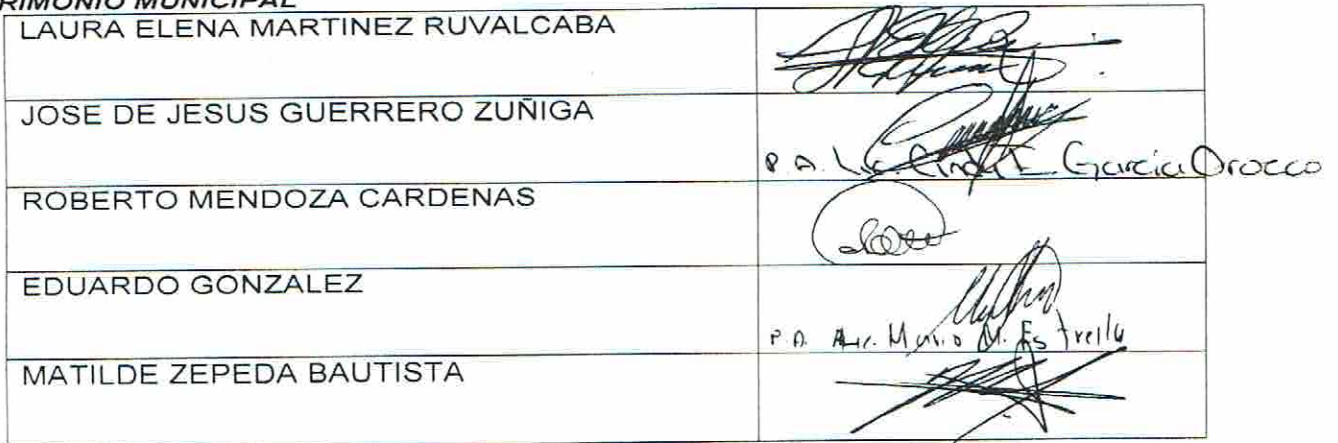 RIMONIO MUNICIPAL
LAURA ELENA MARTINEZ RUVALCABA
JOSE DE JESUS GUERRERO ZUÑIGA
P.A. Lic. Cindy E. Garcia Orozco
ROBERTO MENDOZA CARDENAS
EDUARDO GONZALEZ
P.A. Mario M. Estrella
MATILDE ZEPEDA BAUTISTA